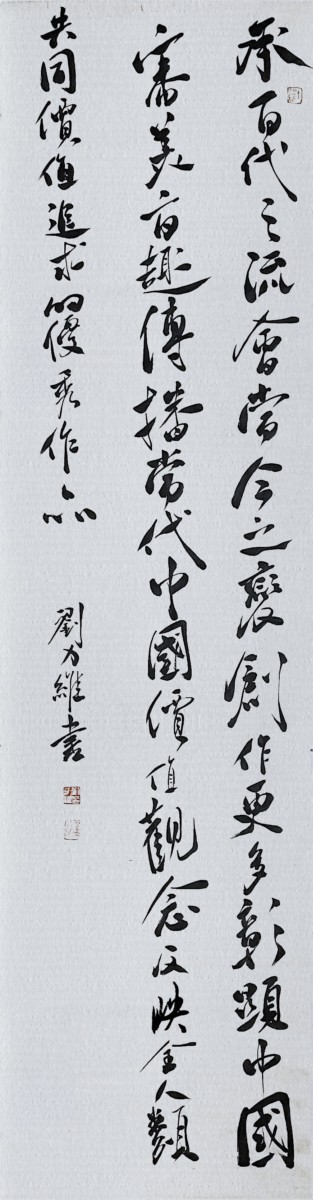 承百代之流會當今之變創作更多彰顯中國
審美旨趣傳播當代中國價值觀念反映全人類
共同價值追求的優秀作品
劉力維書